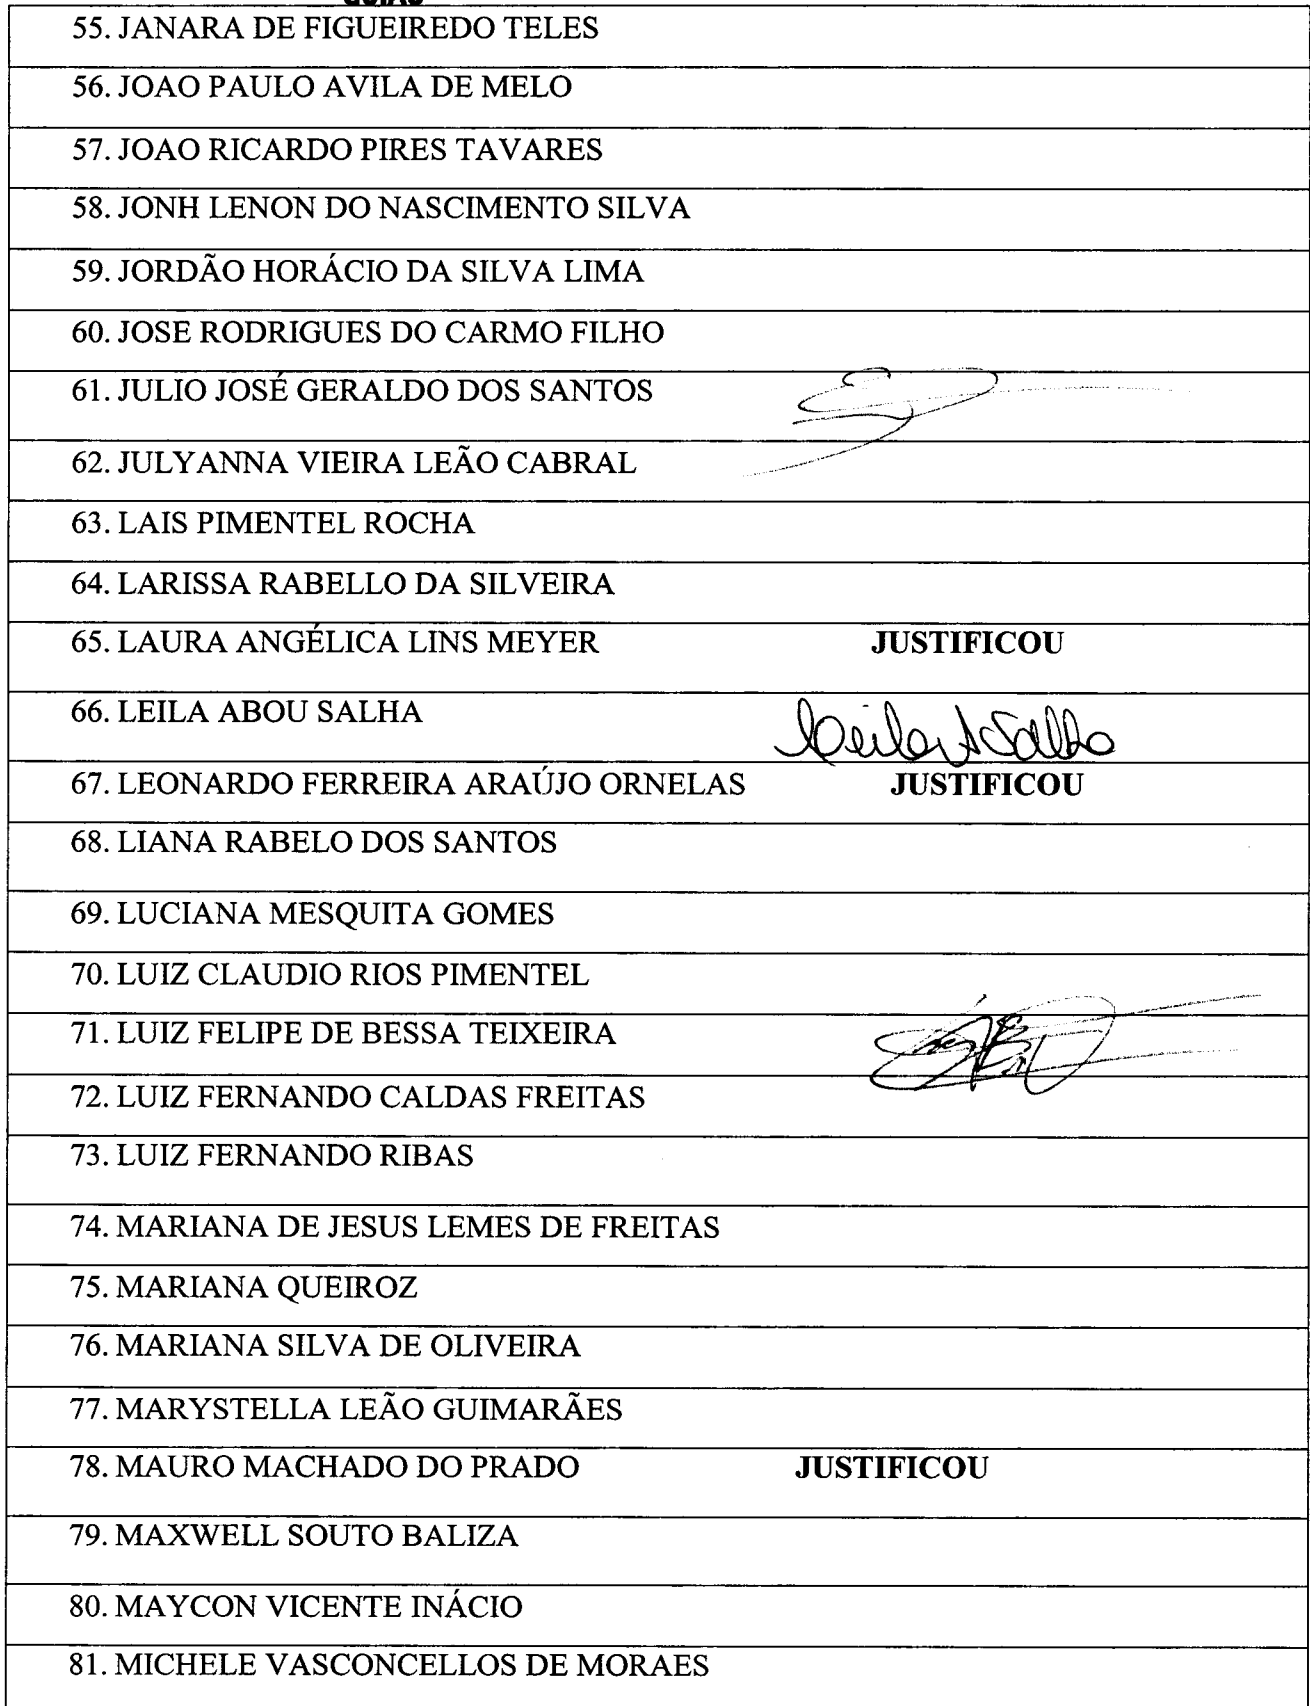 55. JANARA DE FIGUEIREDO TELES
56. JOAO PAULO AVILA DE MELO
57. JOAO RICARDO PIRES TAVARES
58. JONH LENON DO NASCIMENTO SILVA
59. JORDÃO HORÁCIO DA SILVA LIMA
60. JOSE RODRIGUES DO CARMO FILHO
61. JULIO JOSÉ GERALDO DOS SANTOS
62. JULYANNA VIEIRA LEÃO CABRAL
63. LAIS PIMENTEL ROCHA
64. LARISSA RABELLO DA SILVEIRA
65. LAURA ANGÉLICA LINS MEYER JUSTIFICOU
66. LEILA ABOU SALHA Leila A Salha
67. LEONARDO FERREIRA ARAÚJO ORNELAS JUSTIFICOU
68. LIANA RABELO DOS SANTOS
69. LUCIANA MESQUITA GOMES
70. LUIZ CLAUDIO RIOS PIMENTEL
71. LUIZ FELIPE DE BESSA TEIXEIRA
72. LUIZ FERNANDO CALDAS FREITAS
73. LUIZ FERNANDO RIBAS
74. MARIANA DE JESUS LEMES DE FREITAS
75. MARIANA QUEIROZ
76. MARIANA SILVA DE OLIVEIRA
77. MARYSTELLA LEÃO GUIMARÃES
78. MAURO MACHADO DO PRADO JUSTIFICOU
79. MAXWELL SOUTO BALIZA
80. MAYCON VICENTE INÁCIO
81. MICHELE VASCONCELLOS DE MORAES